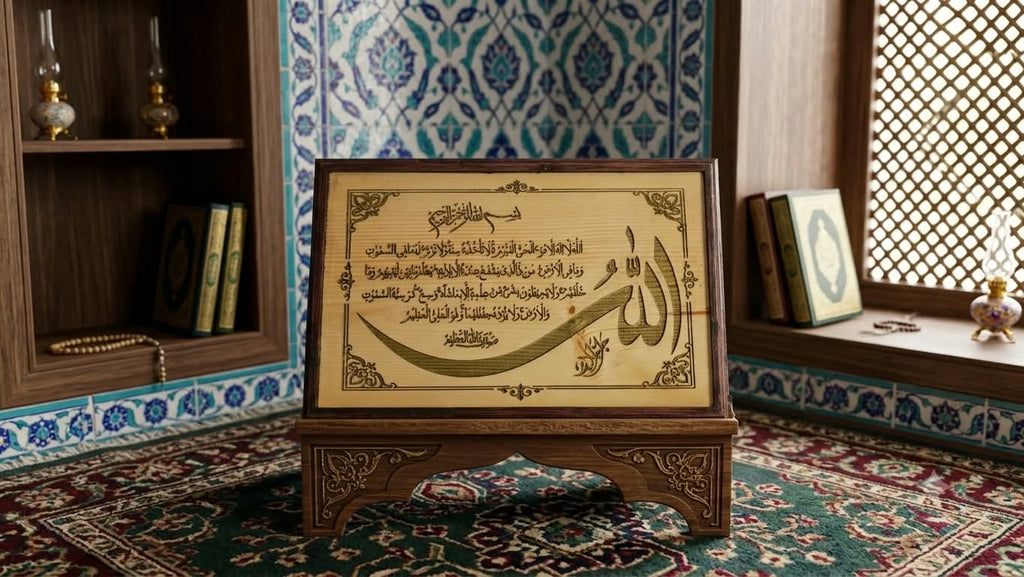 بسم الله الرحمن الرحيم
الله لا اله الا هو الحي القيوم لا تأخذه سنة ولا نوم له ما في السموت
وما في الارض من ذا الذي يشفع عنده الا باذنه يعلم ما بين ايديهم وما
خلفهم ولا يحيطون بشئ من علمه الا بما شاء وسع كرسيه السموت
والارض ولا يؤده حفظهما وهو العلي العظيم
صدق الله العظيم
الله
جل جلاله